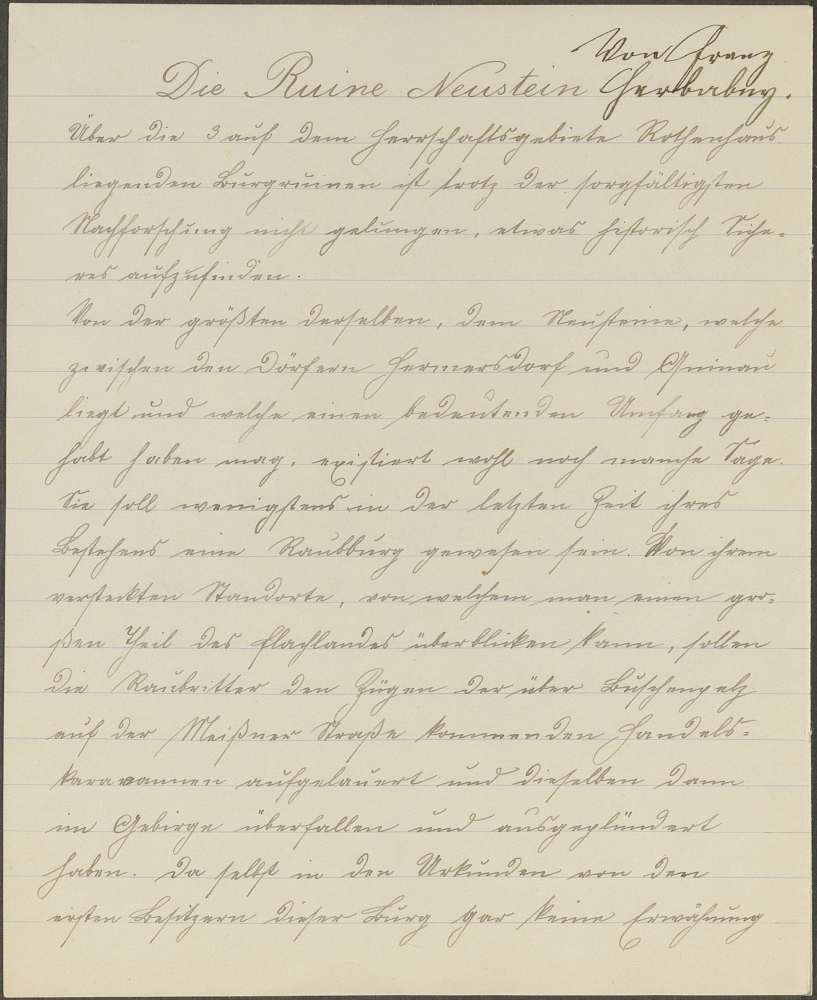 Von Franz
Die Ruine Neustein Herbabny.
Über die 3 auf dem Herrschaftsgebiete Rothenhaus
liegenden Burgruinen ist trotz der sorgfältigsten
Nachforschung nicht gelungen, etwas historisch Siche-
res aufzufinden.
Von der größten derselben, dem Neusteine, welche
zwischen den Dörfern Hermersdorf und Quinau
liegt und welche einen bedeutenden Umfang ge-
habt haben mag, existiert wohl noch manche Sage.
Sie soll wenigstens in der letzten Zeit ihres
Bestehens eine Raubburg gewesen sein. Von ihrem
versteckten Standorte, von welchem man einen gro-
ßen Theil des Flachlandes überblicken kann, sollen
die Raubritter den Zügen der über Buschenpelz
auf der Meißner Straße kommenden Handels-
karavannen aufgelauert und dieselben dann
im Gebirge überfallen und ausgeplündert
haben. Da selbst in den Urkunden von den
ersten Besitzern dieser Burg gar keine Erwähnung